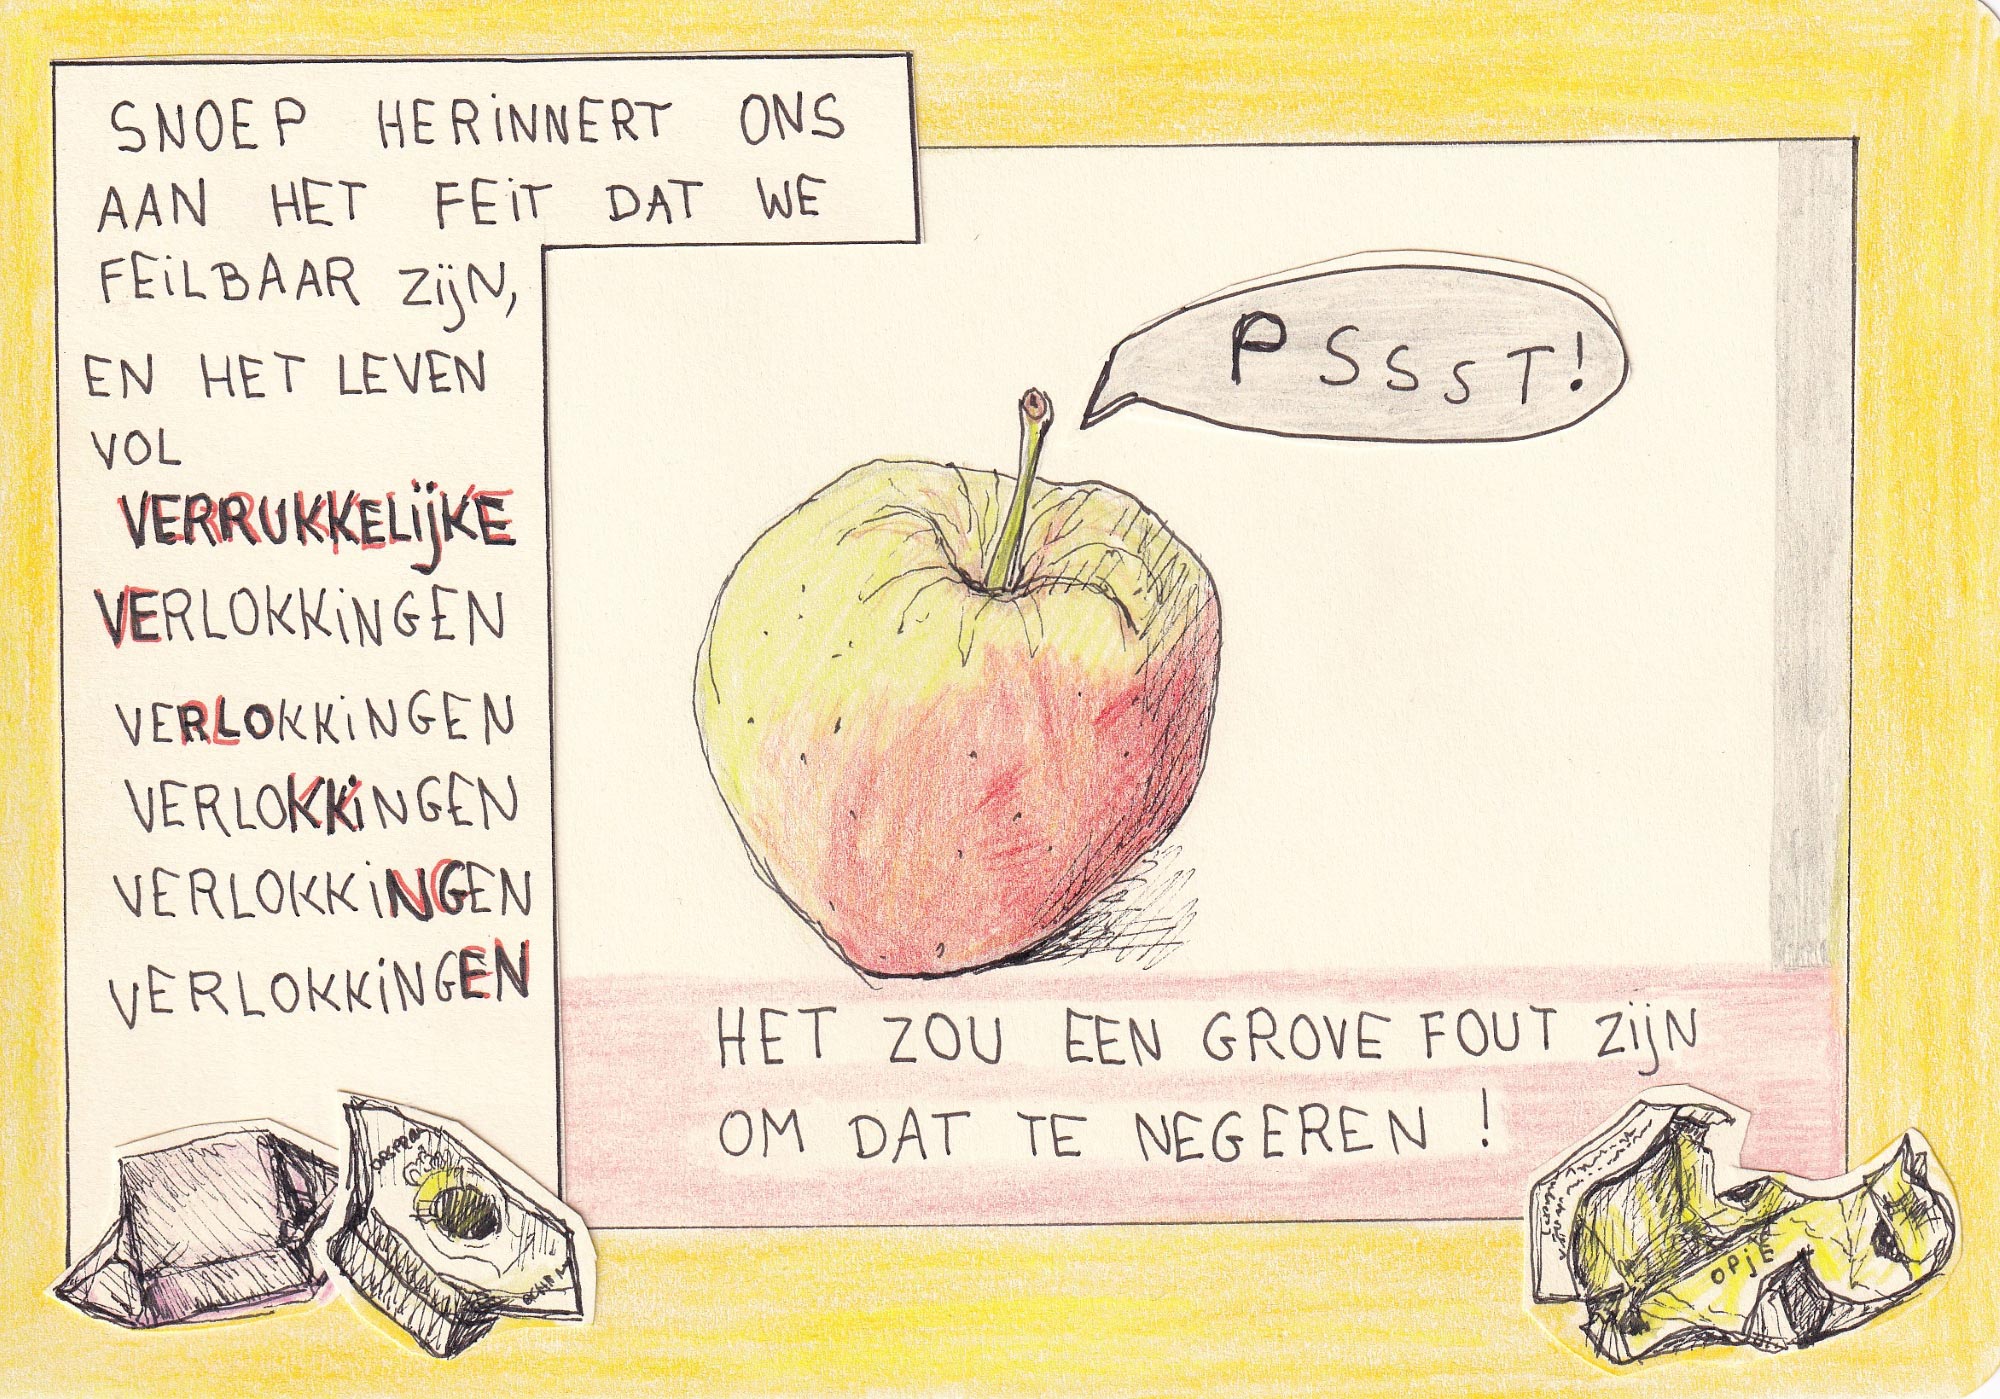 SNOEP HERINNERT ONS
AAN HET FEIT DAT WE
FEILBAAR ZIJN,
EN HET LEVEN
VOL
VERRUKKELIJKE
VERLOKKINGEN
VERLOKKINGEN
VERLOKKINGEN
VERLOKKINGEN
VERLOKKINGEN
PSSST!
HET ZOU EEN GROVE FOUT ZIJN
OM DAT TE NEGEREN!
OPJE